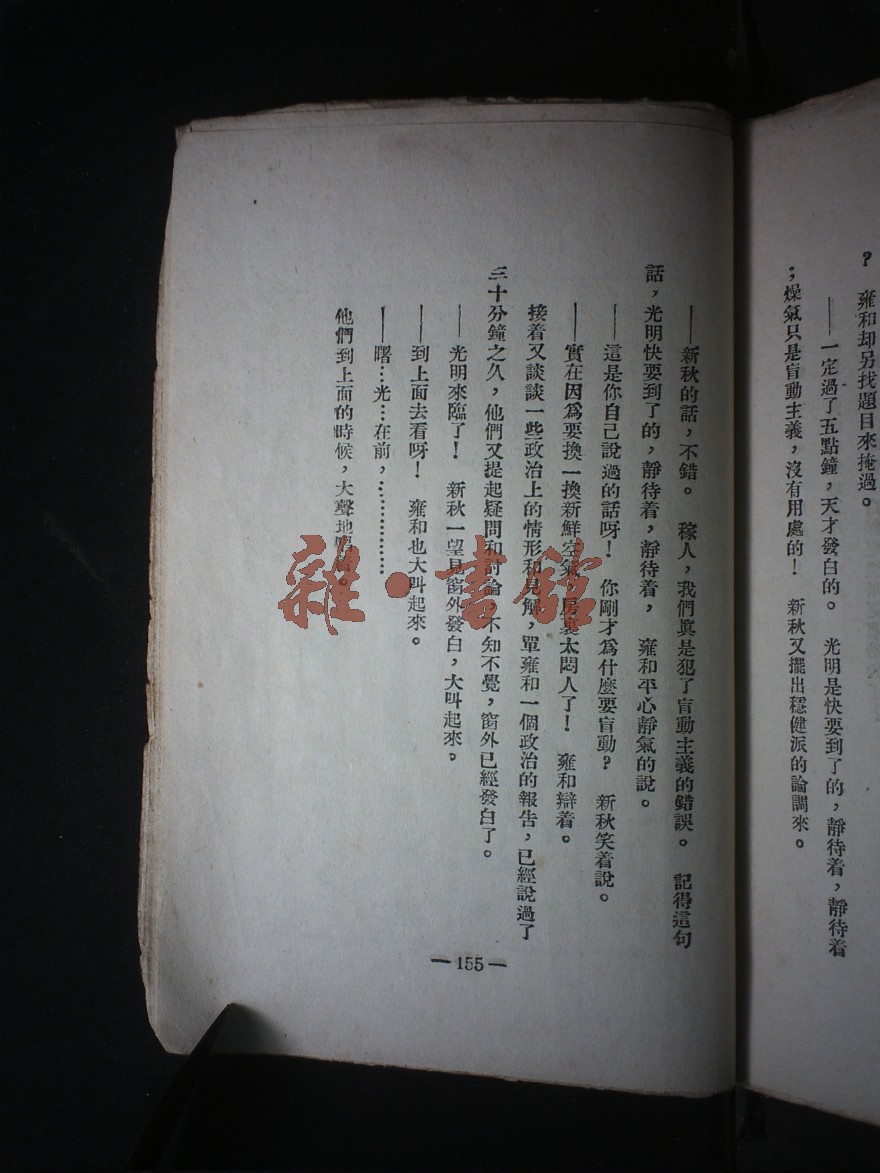 ？　雍和却另找題目來掩過。
——一定過了五點鐘，天才發白的。　光明是快要到了的，靜待着，靜待着
；燥氣只是盲動主義，沒有用處的！　新秋又擺出穩健派的論調來。
——新秋的話，不錯。　稼人，我們眞是犯了盲動主義的錯誤。　記得這句
話，光明快要到了的，靜待着，靜待着，　雍和平心靜氣的說。
——這是你自己說過的話呀！　你剛才爲什麼要盲動？　新秋笑着說。
——實在因爲要換一換新鮮空氣，房裏太悶人了！　雍和辯着。
接着又談談一些政治上的情形和見解，單雍和一個政治的報告，已經說過了
三十分鐘之久，他們又提起疑問和討論，不知不覺，窗外已經發白了。
——光明來臨了！　新秋一望見窗外發白，大叫起來。
——到上面去看呀！　雍和也大叫起來。
——曙…光…在前，……………
他們到上面的時候，大聲地
—155—
雜·書館